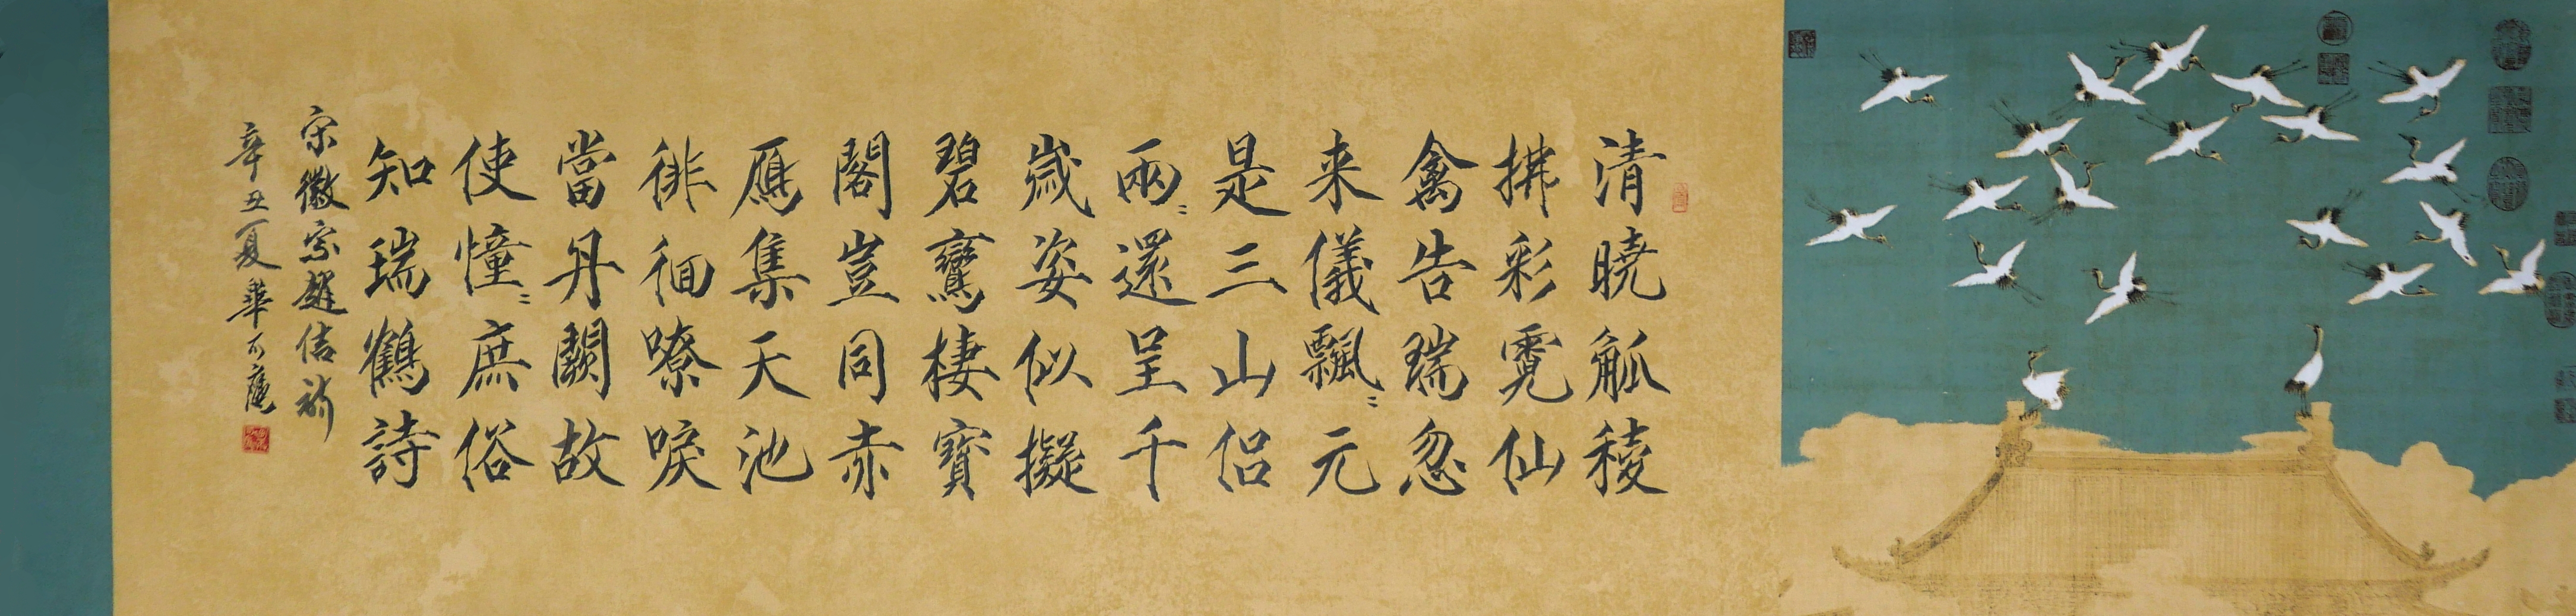 清曉觚稜
拂彩霓仙
禽告瑞忽
来儀飄〻元
是三山侣
兩〻還呈千
歲姿似擬
碧鸞棲寶
閣豈同赤
鴈集天池
徘徊嘹唳
當丹闕故
使憧〻庶俗
知瑞鶴詩
宋徽宗趙佶詩
辛丑夏華